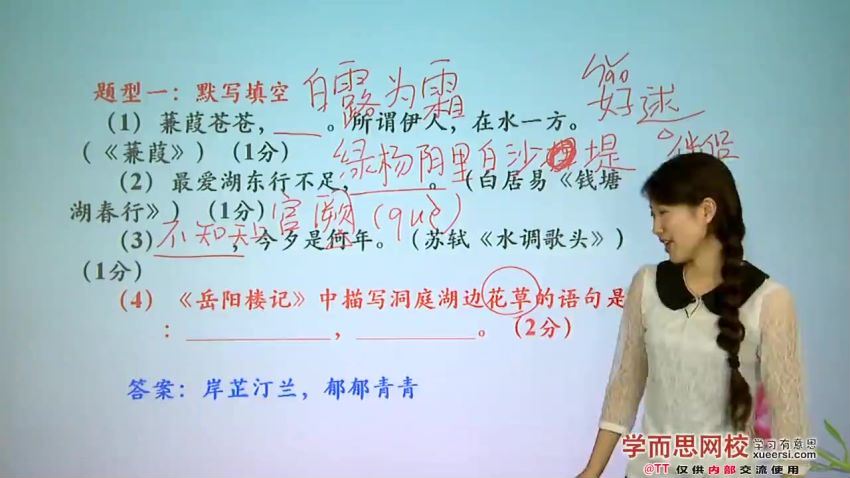 题型一：默写填空 白露为霜
hǎo
好逑
（1）蒹葭苍苍，____。所谓伊人，在水一方。
（《蒹葭》）（1分）
绿杨阴里白沙堤
（2）最爱湖东行不足，________。（白居易《钱塘
湖春行》）（1分）
宫阙（què）
（3）不知天上，今夕是何年。（苏轼《水调歌头》）
（1分）
（4）《岳阳楼记》中描写洞庭湖边花草的语句是
：____________，____________。（2分）
答案：岸芷汀兰，郁郁青青
学而思网校 学习有意思
xueersi.com
@TT 仅供内部交流使用